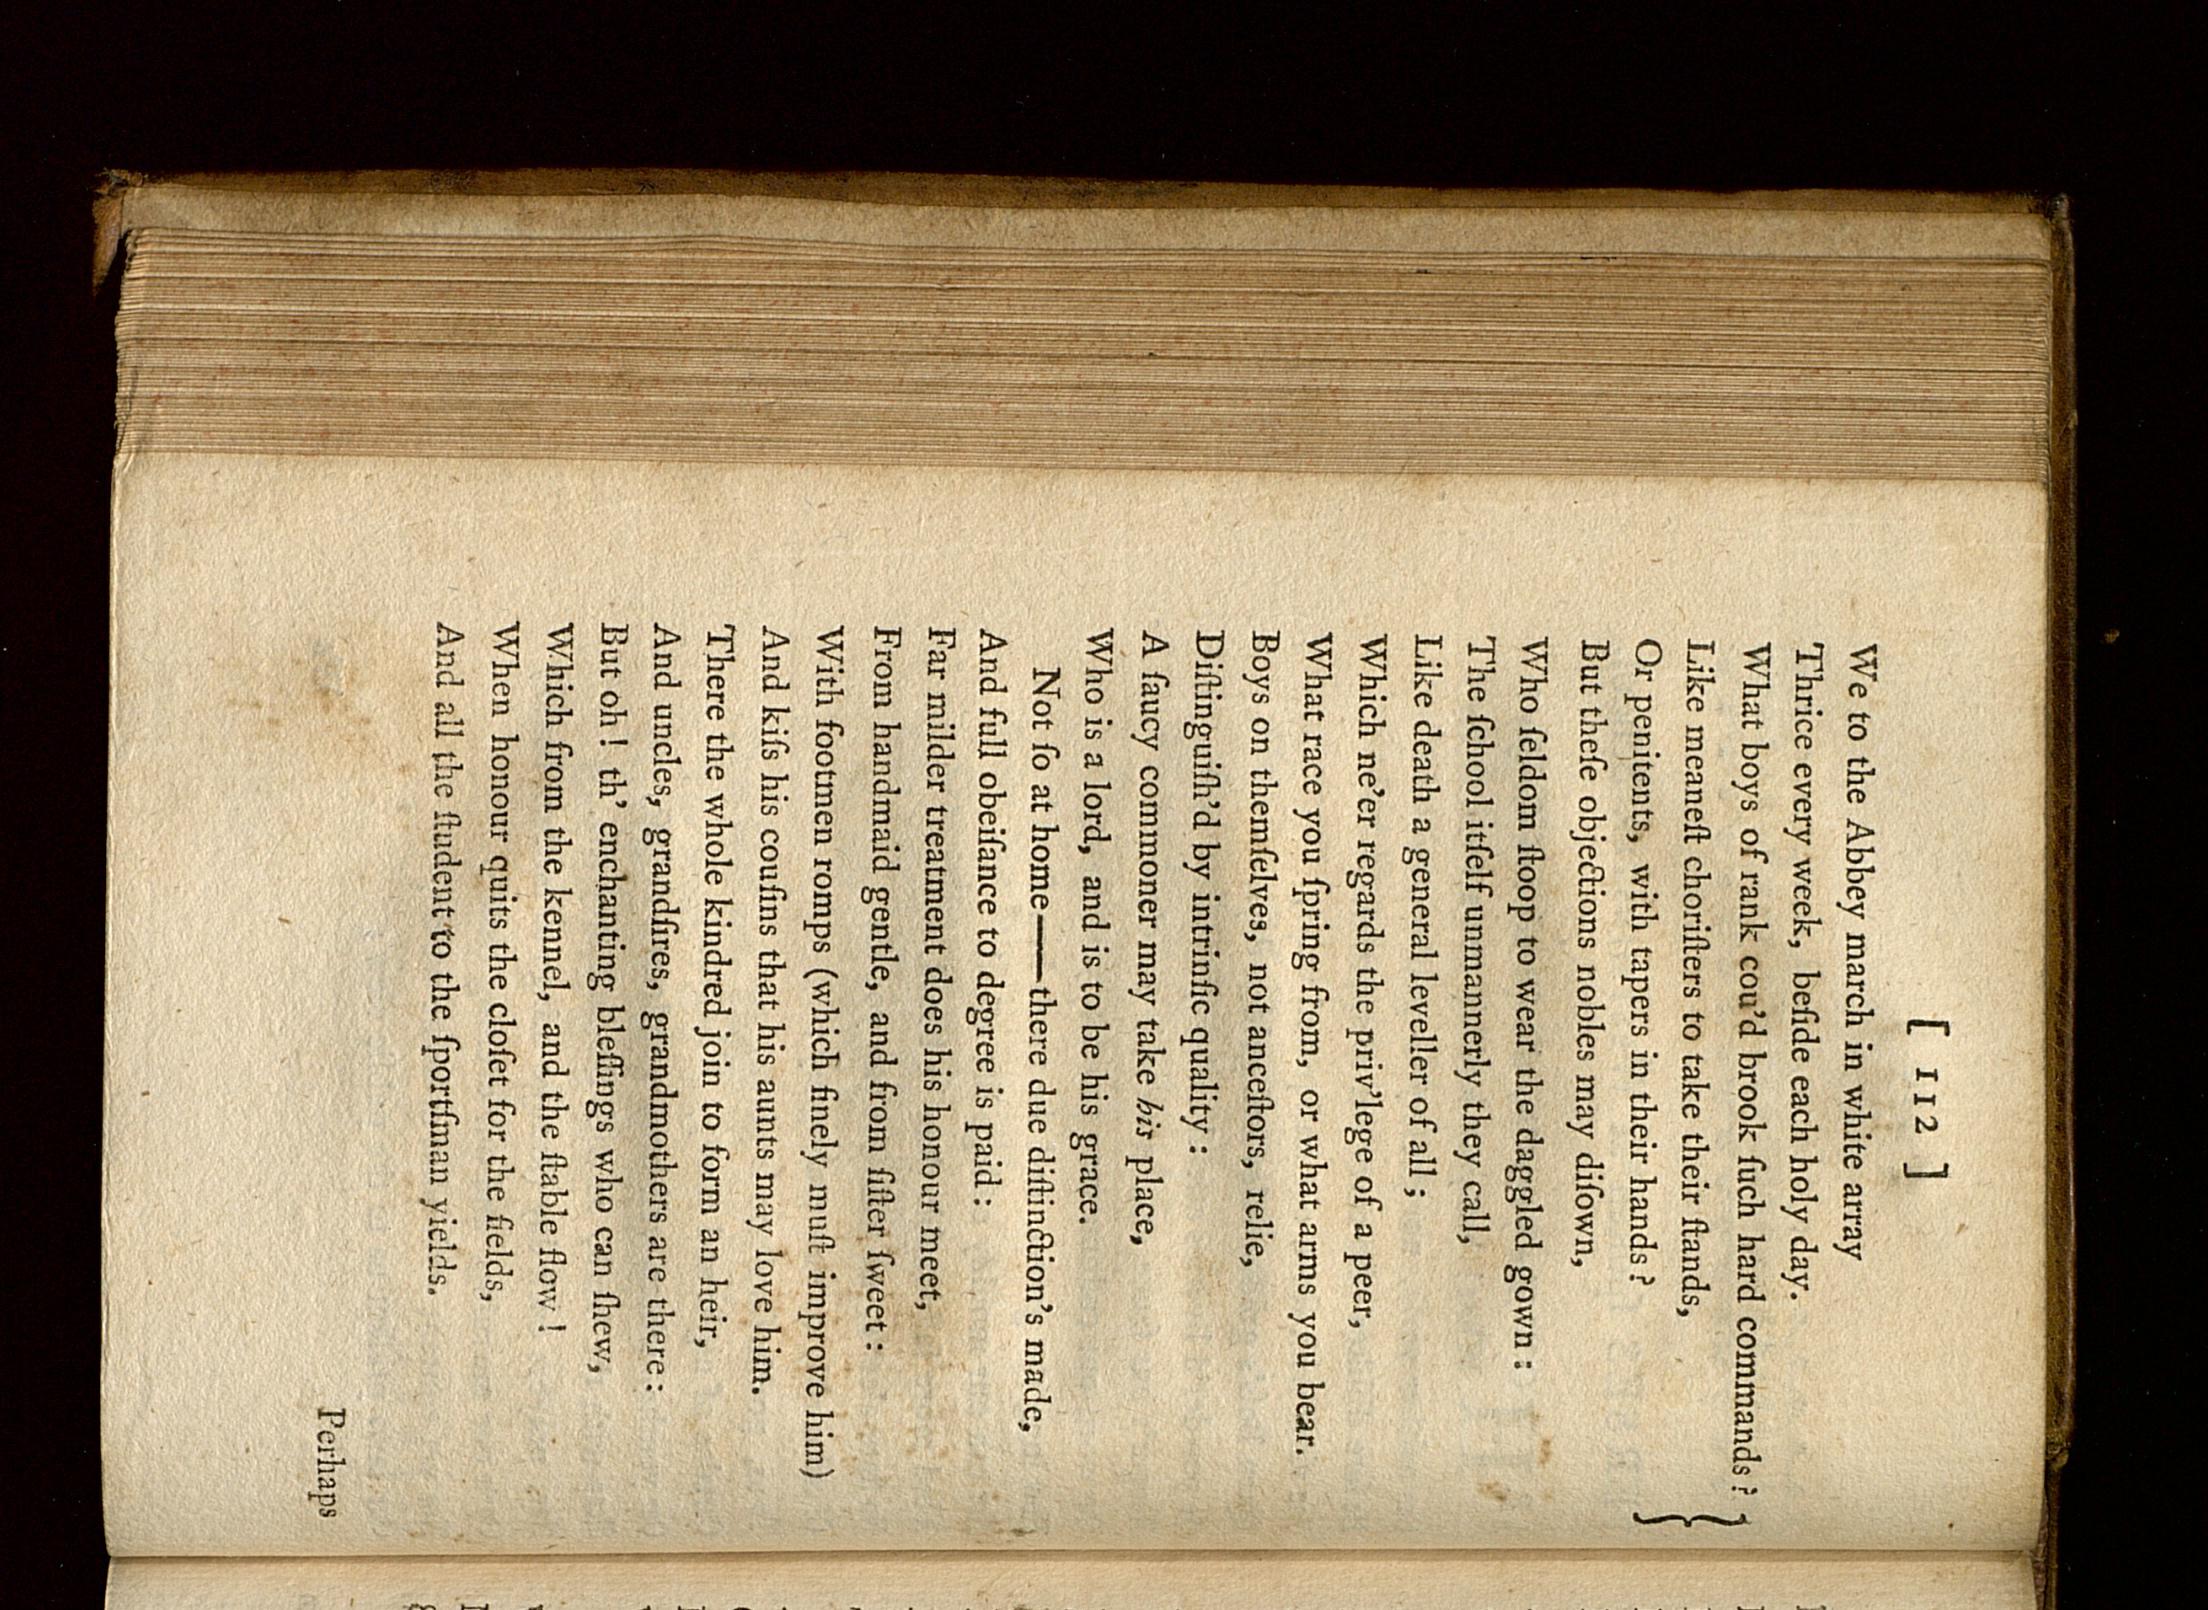 [ 112 ]
We to the Abbey march in white array
Thrice every week, beſide each holy day.
What boys of rank cou'd brook ſuch hard commands?
Like meaneſt choriſters to take their ſtands,
Or penitents, with tapers in their hands?
But theſe objections nobles may diſown,
Who ſeldom ſtoop to wear the daggled gown:
The ſchool itſelf unmannerly they call,
Like death a general leveller of all;
Which ne'er regards the priv'lege of a peer,
What race you ſpring from, or what arms you bear.
Boys on themſelves, not anceſtors, relie,
Diſtinguiſh'd by intrinſic quality:
A ſaucy commoner may take his place,
Who is a lord, and is to be his grace.
Not ſo at home——there due diſtinction's made,
And full obeiſance to degree is paid:
Far milder treatment does his honour meet,
From handmaid gentle, and from ſiſter ſweet:
With footmen romps (which finely muſt improve him)
And kiſs his couſins that his aunts may love him.
There the whole kindred join to form an heir,
And uncles, grandſires, grandmothers are there:
But oh! th' enchanting bleſſings who can ſhew,
Which from the kennel, and the ſtable flow!
When honour quits the cloſet for the fields,
And all the ſtudent to the ſportſman yields.
Perhaps